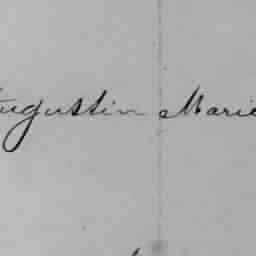 Augustin Marie